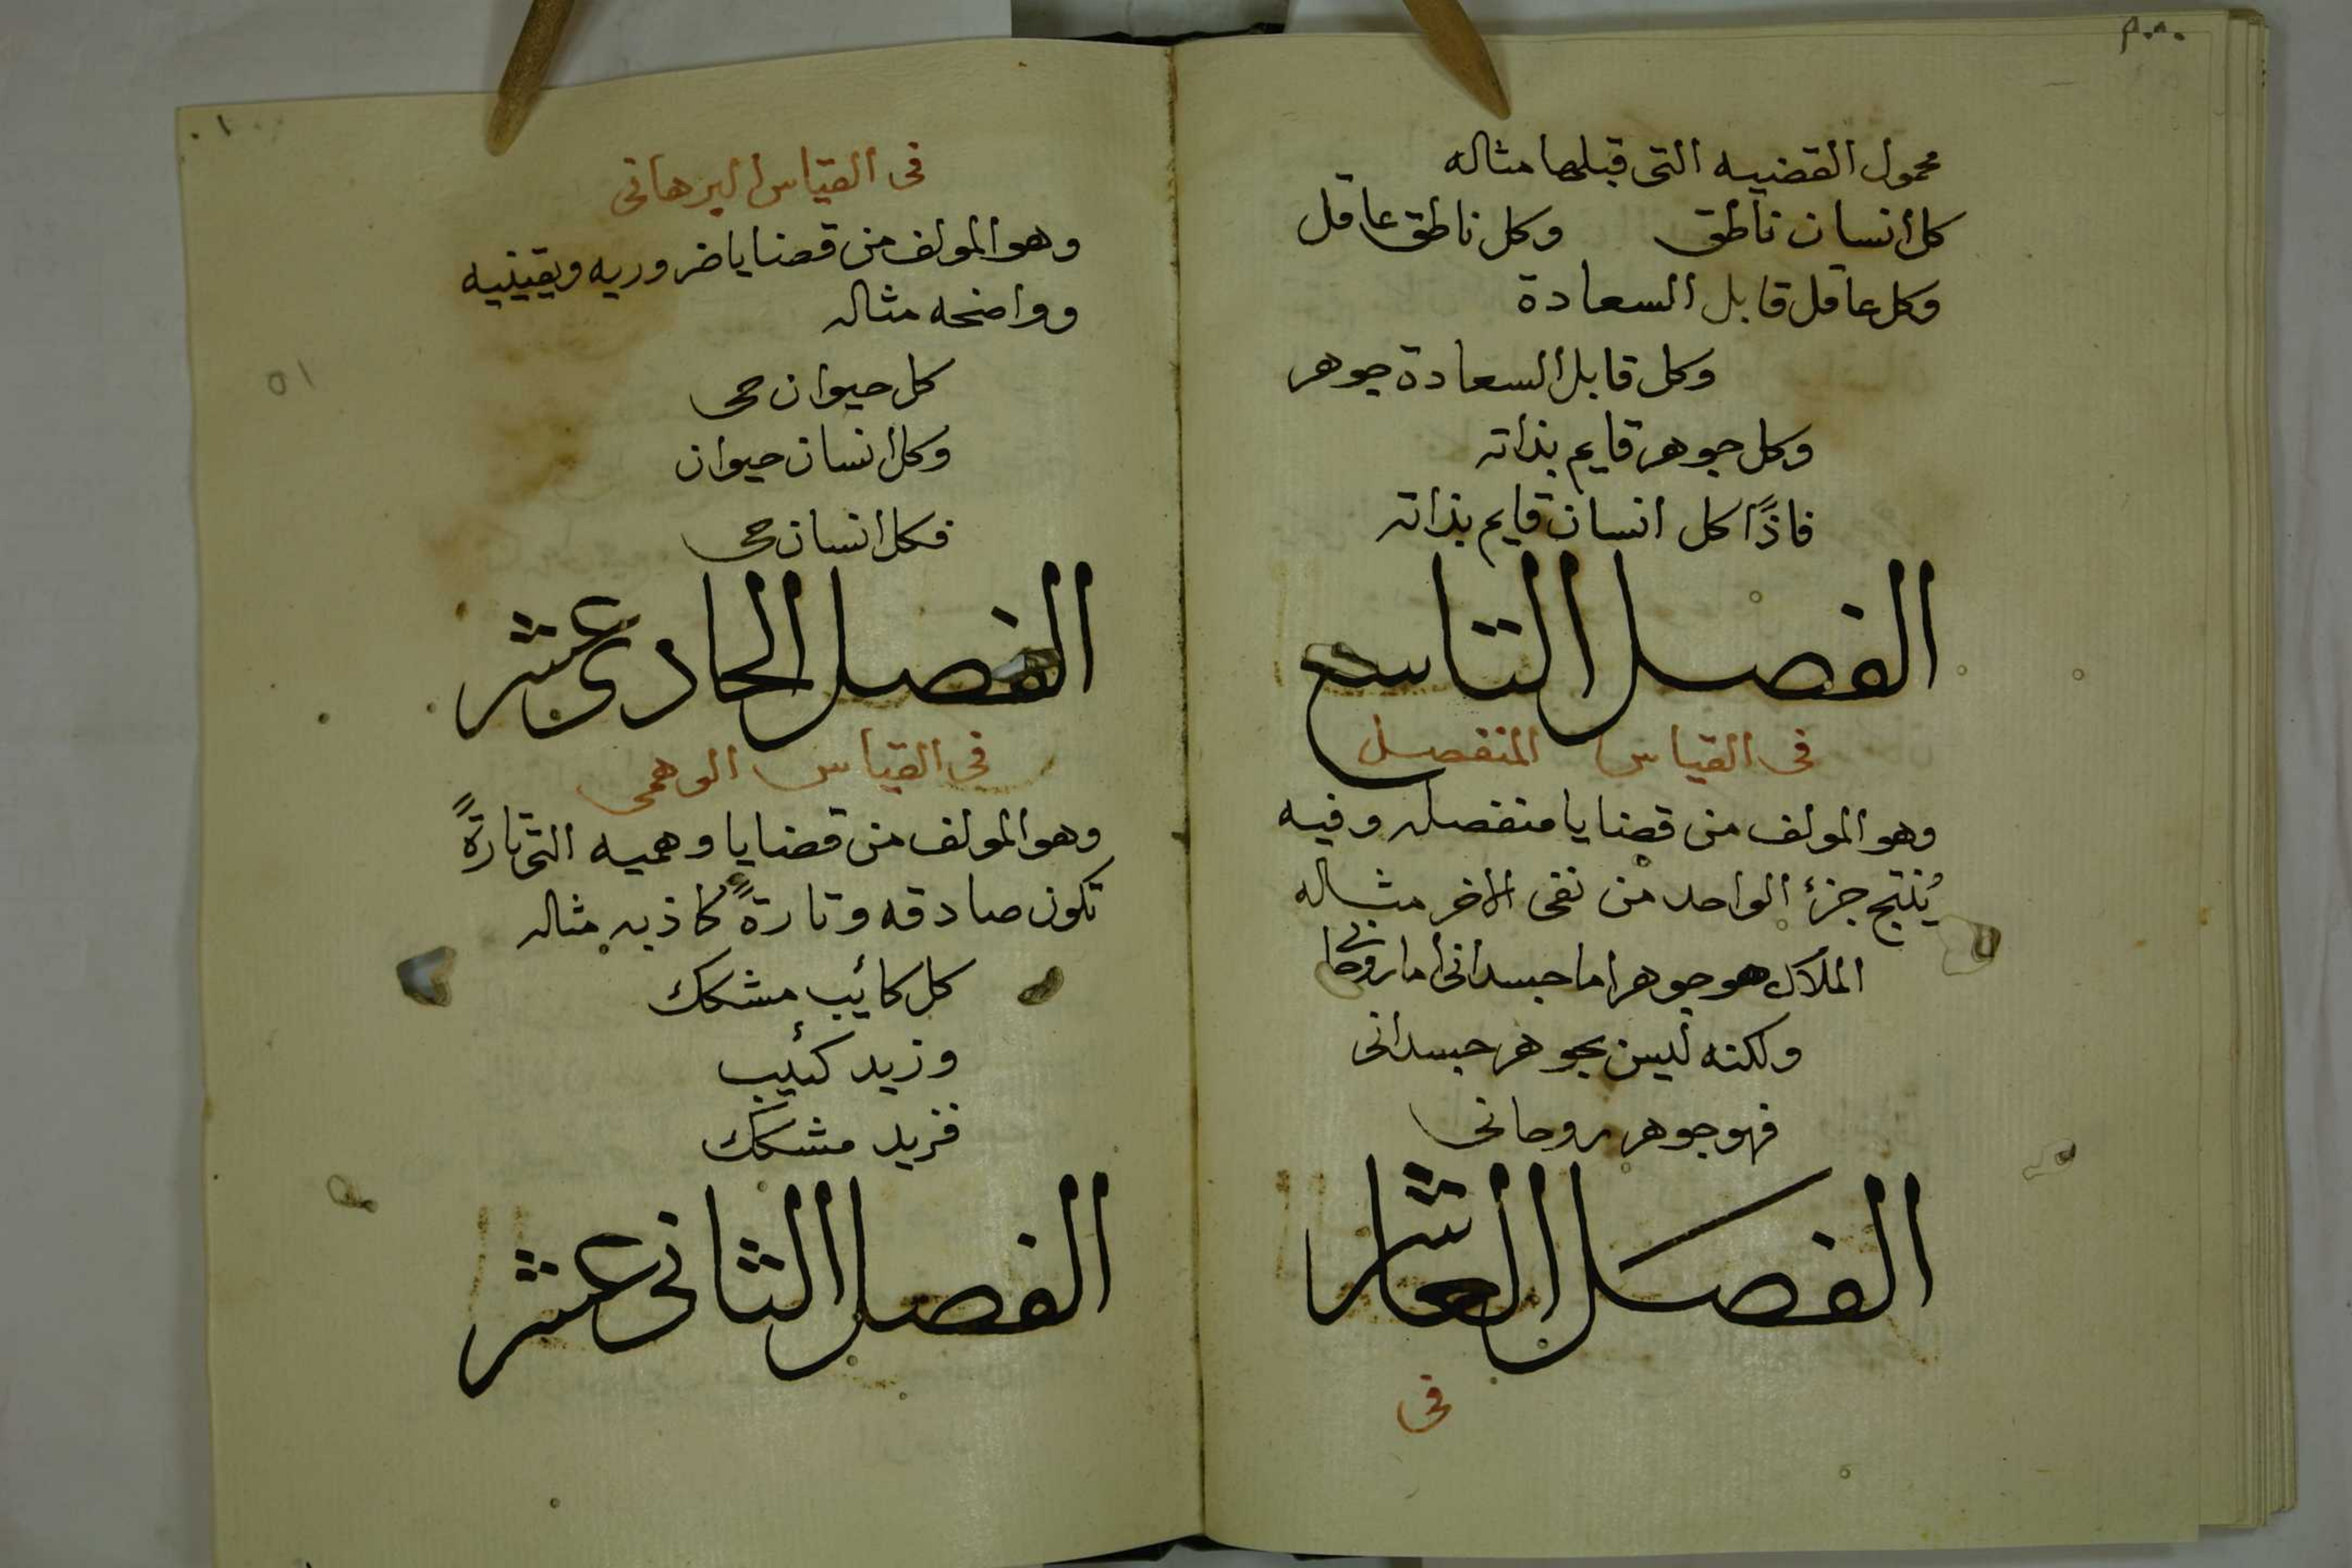 محمول القضيه التى قبلها مثاله
كل انسان ناطق وكل ناطق عاقل
وكل عاقل قابل السعادة
وكل قابل السعادة جوهر
وكل جوهر قايم بذاته
فاذًا كل انسان قايم بذاته
الفصل التاسع
فى القياس المنفصل
وهو المولف من قضايا منفصله وفيه
يُنتج جزئ الواحد من نفى الاخر مثاله
الملاك هو جوهر اما جسدانى اما روحانى
ولكنه ليس بجوهر جسدانى
فهو جوهر روحانى
الفصل العاشر
فى
فى القياس البرهانى
وهو المولف من قضايا ضروريه ويقينيه
وواضحه مثاله
كل حيوان حى
وكل انسان حيوان
فكل انسان حى
الفصل الحادى عشر
فى القياس الوهمى
وهو المولف من قضايا وهميه التى تارةً
تكون صادقه وتارةً كاذبه مثاله
كل كائيب مشكك
وزيد كئيب
فزيد مشكك
الفصل الثانى عشر